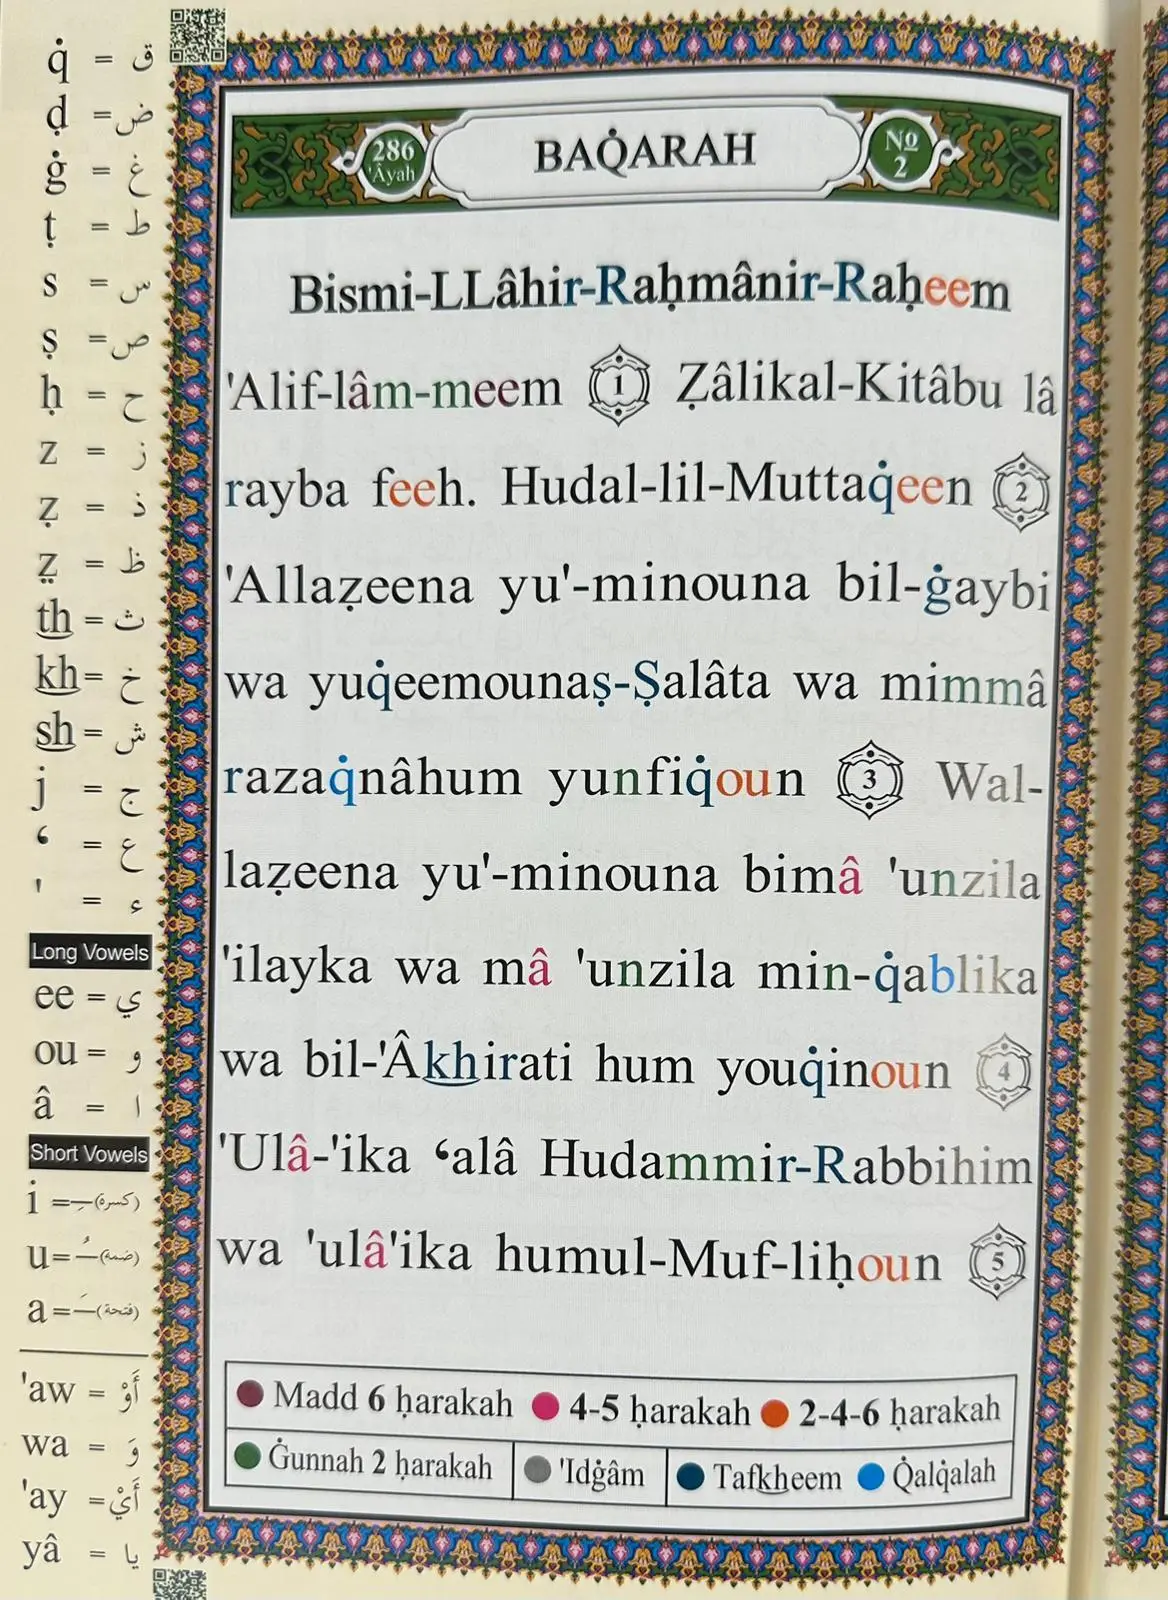 q̇ = ق
ḍ = ض
ġ = غ
ṭ = ط
s = س
ṣ = ص
ḥ = ح
z = ز
ẓ = ذ
z̤ = ظ
th = ث
kh = خ
sh = ش
j = ج
‘ = ع
' = ء
Long Vowels
ee = ي
ou = و
â = ا
Short Vowels
i = ـِ (كسرة)
u = ـُ (ضمة)
a = ـَ (فتحة)
'aw = أَوْ
wa = وَ
'ay = أَيْ
yâ = يا
286 'Âyah
BAQ̇ARAH
No 2
Bismi-LLâhir-Raḥmânir-Raḥeem
'Alif-lâm-meem 1 Ẓâlikal-Kitâbu lâ
rayba feeh. Hudal-lil-Muttaq̇een 2
'Allaẓeena yu'-minouna bil-ġaybi
wa yuq̇eemounaṣ-Ṣalâta wa mimmâ
razaq̇nâhum yunfiq̇oun 3 Wal-
laẓeena yu'-minouna bimâ 'unzila
'ilayka wa mâ 'unzila min-q̇ablika
wa bil-'Âkhirati hum youq̇inoun 4
'Ulâ-'ika ‘alâ Hudammir-Rabbihim
wa 'ulâ'ika humul-Muf-liḥoun 5
Madd 6 ḥarakah 4-5 ḥarakah 2-4-6 ḥarakah
Ġunnah 2 ḥarakah 'Idġâm Tafkheem Q̇alq̇alah